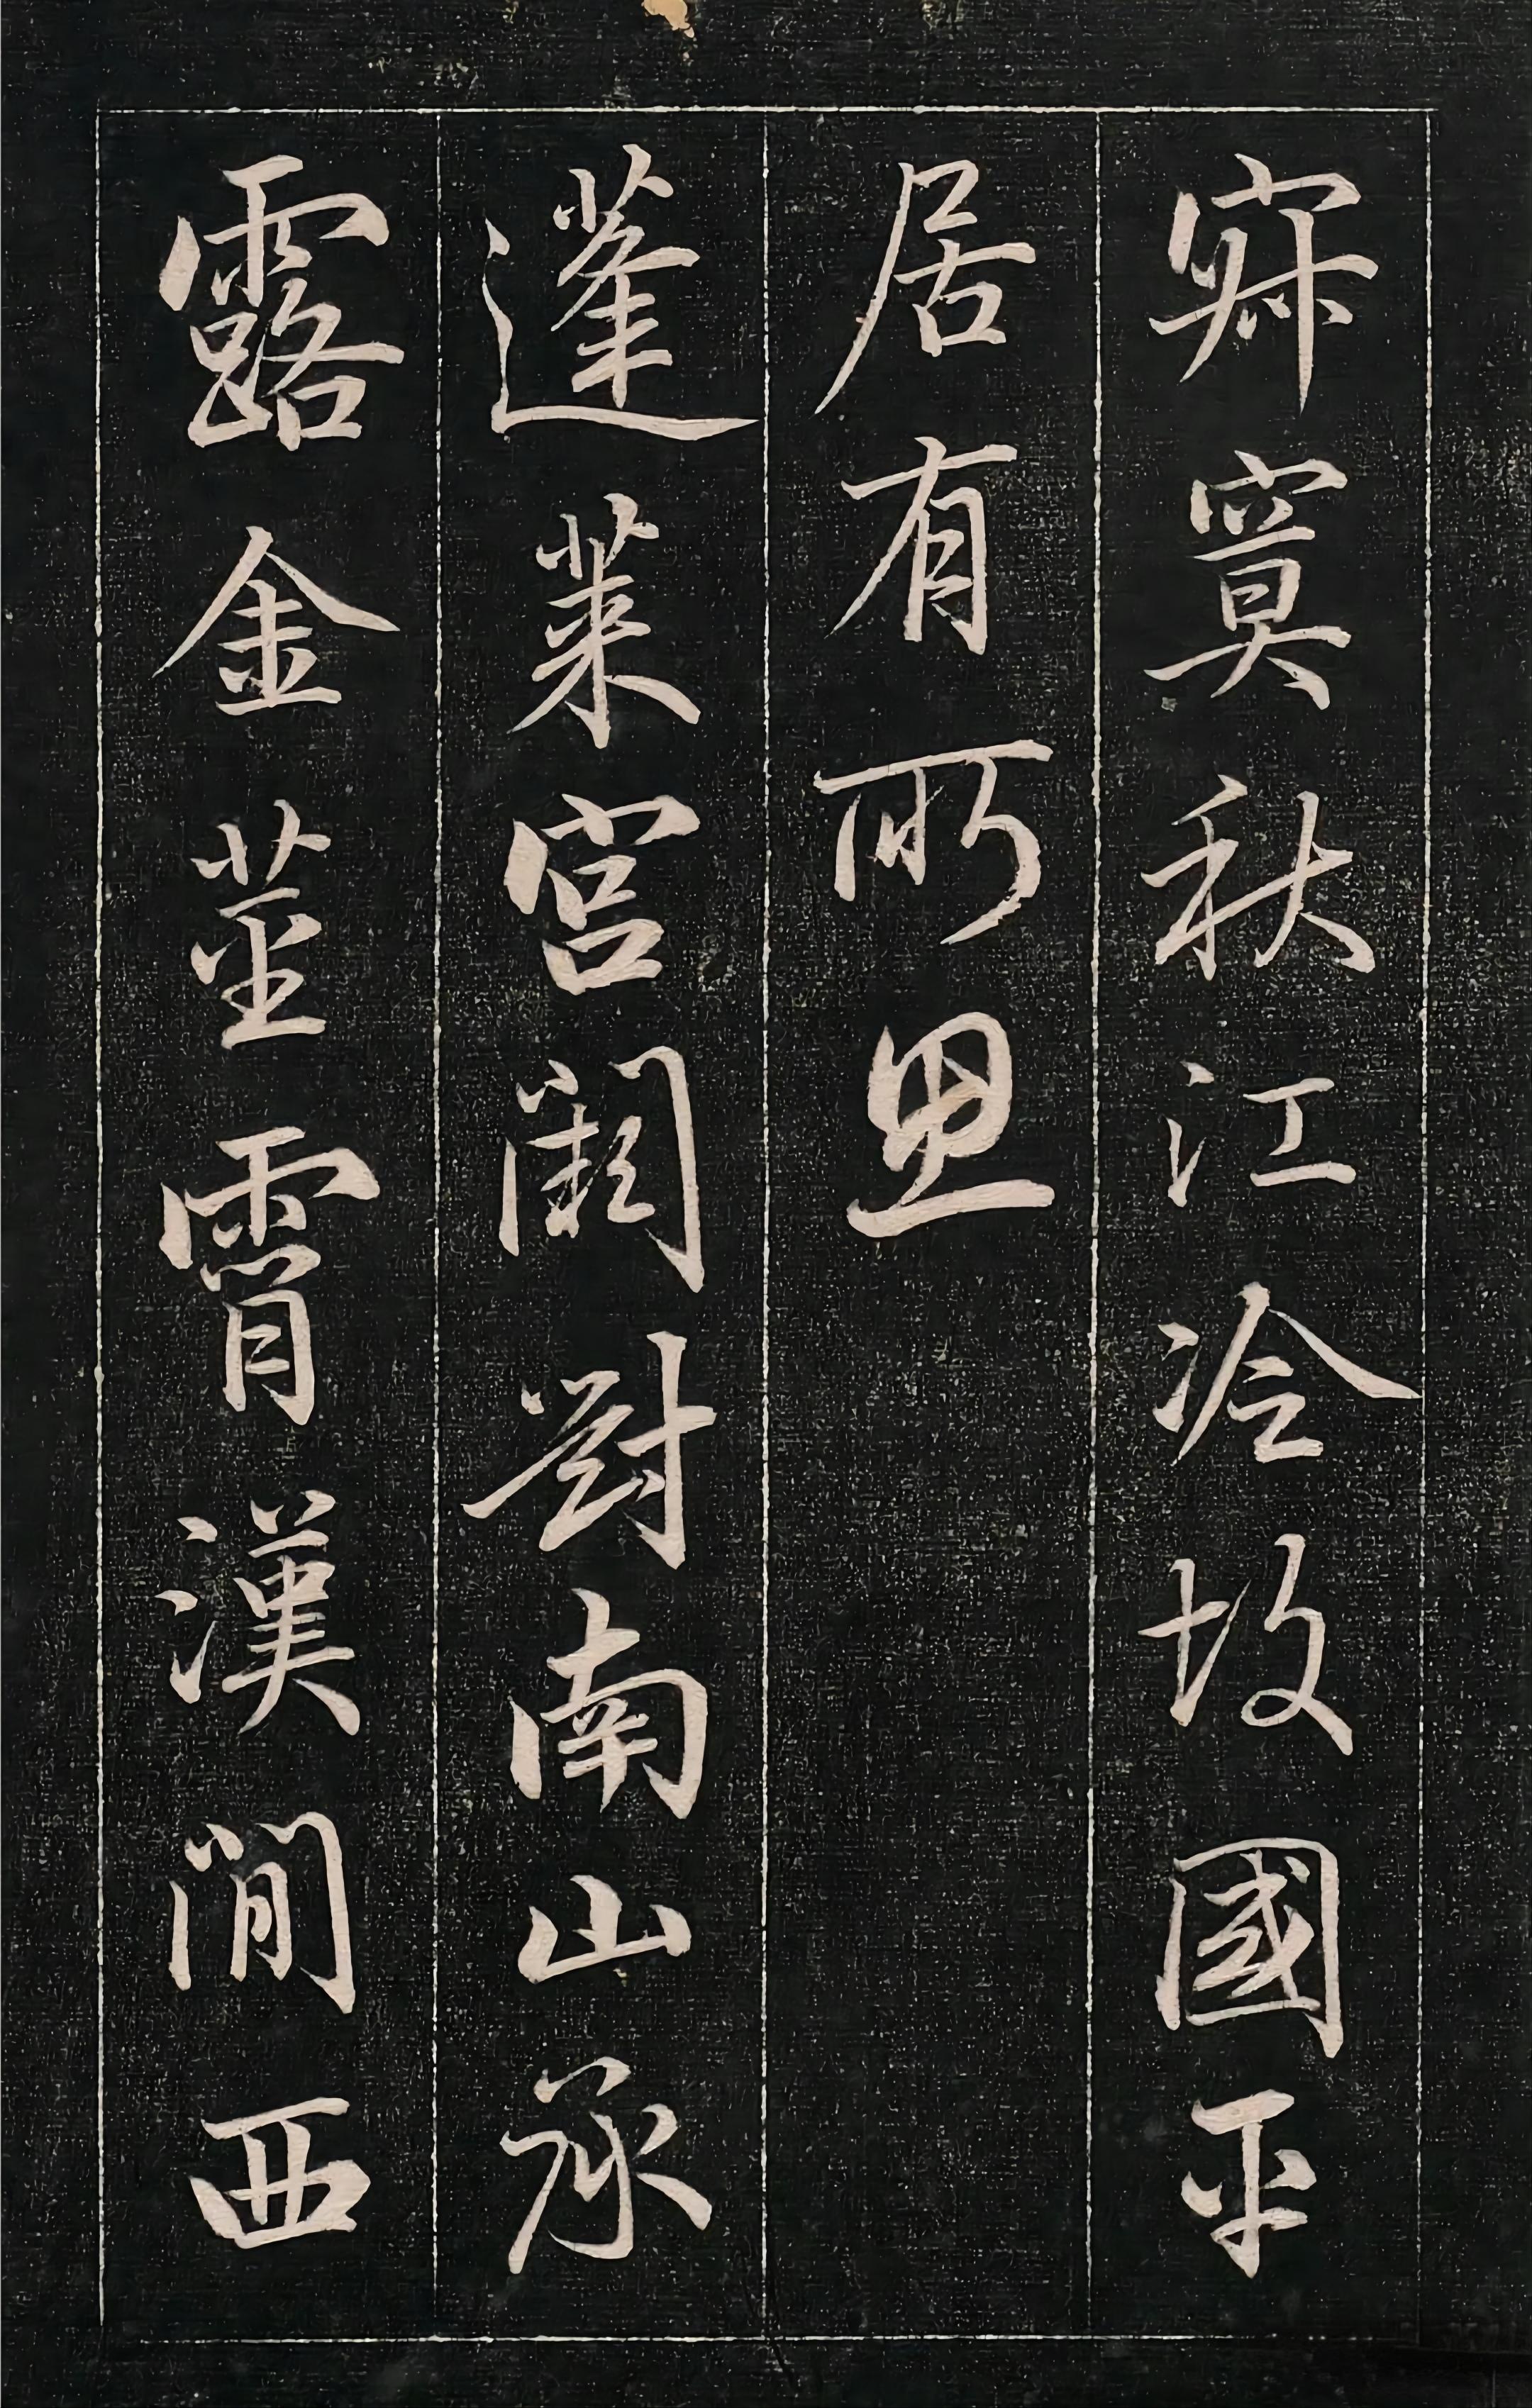 寂寞秋江冷故國平
居有所思
蓬萊宮闕對南山承
露金莖霄漢間西